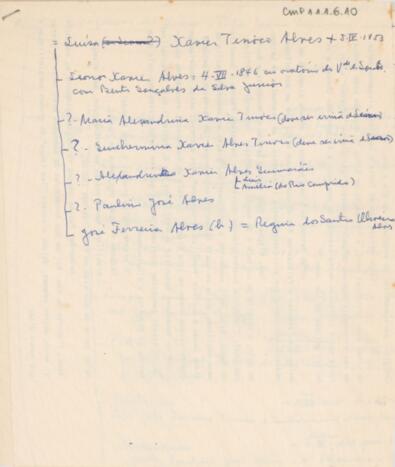 CMP 1.1.1.6.10
= Luisa Xavier Tinoco Alves + 5-IX-1853
Leonor Xavier Alves = 4-VII-1846 no oratório do Vde de
com Bento Gonçalves da Silva Junior
? - Maria Alexandrina Xavier Tinoco (deve ser irmã de
? - Guilhermina Xavier Alves Tinoco (deve ser irmã de
? - Xavier Alves Guimarães
Luis
Amélia (do Rio Comprido)
? - Paulino José Alves
José Ferreira Alves (h) = Regina dos Santos Oliveira
Alves